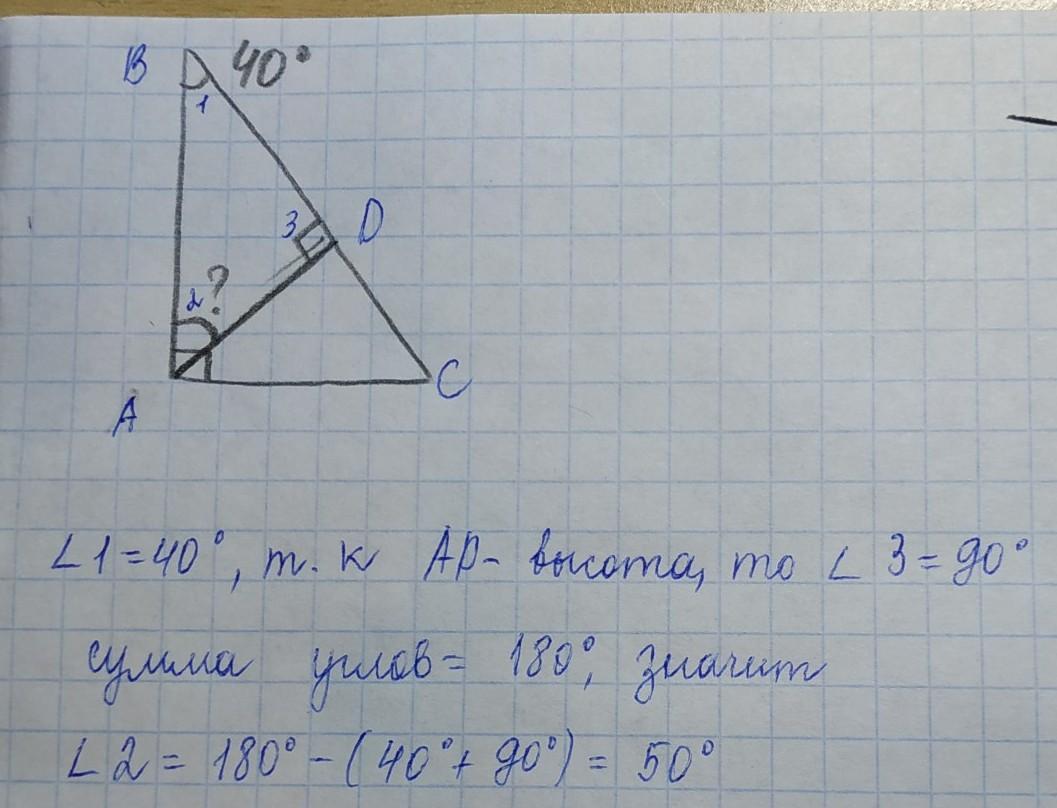 B 40°
1
3 D
2 ?
C
A
∠1=40°, т. к AD- высота, то ∠ 3=90°
сумма углов= 180°, значит
∠2= 180°-(40°+90°)= 50°